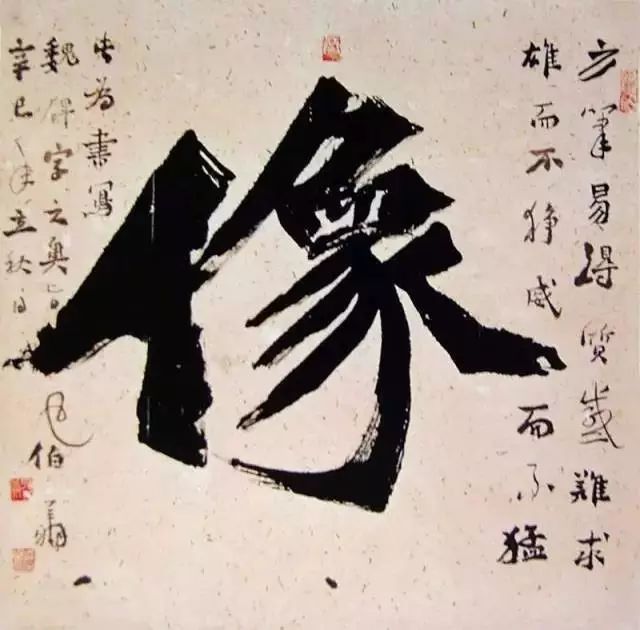 方筆易得質感難求
雄而不狰威而不猛
像
此为書寫
魏碑字之奥旨
辛巳年立秋日
伯